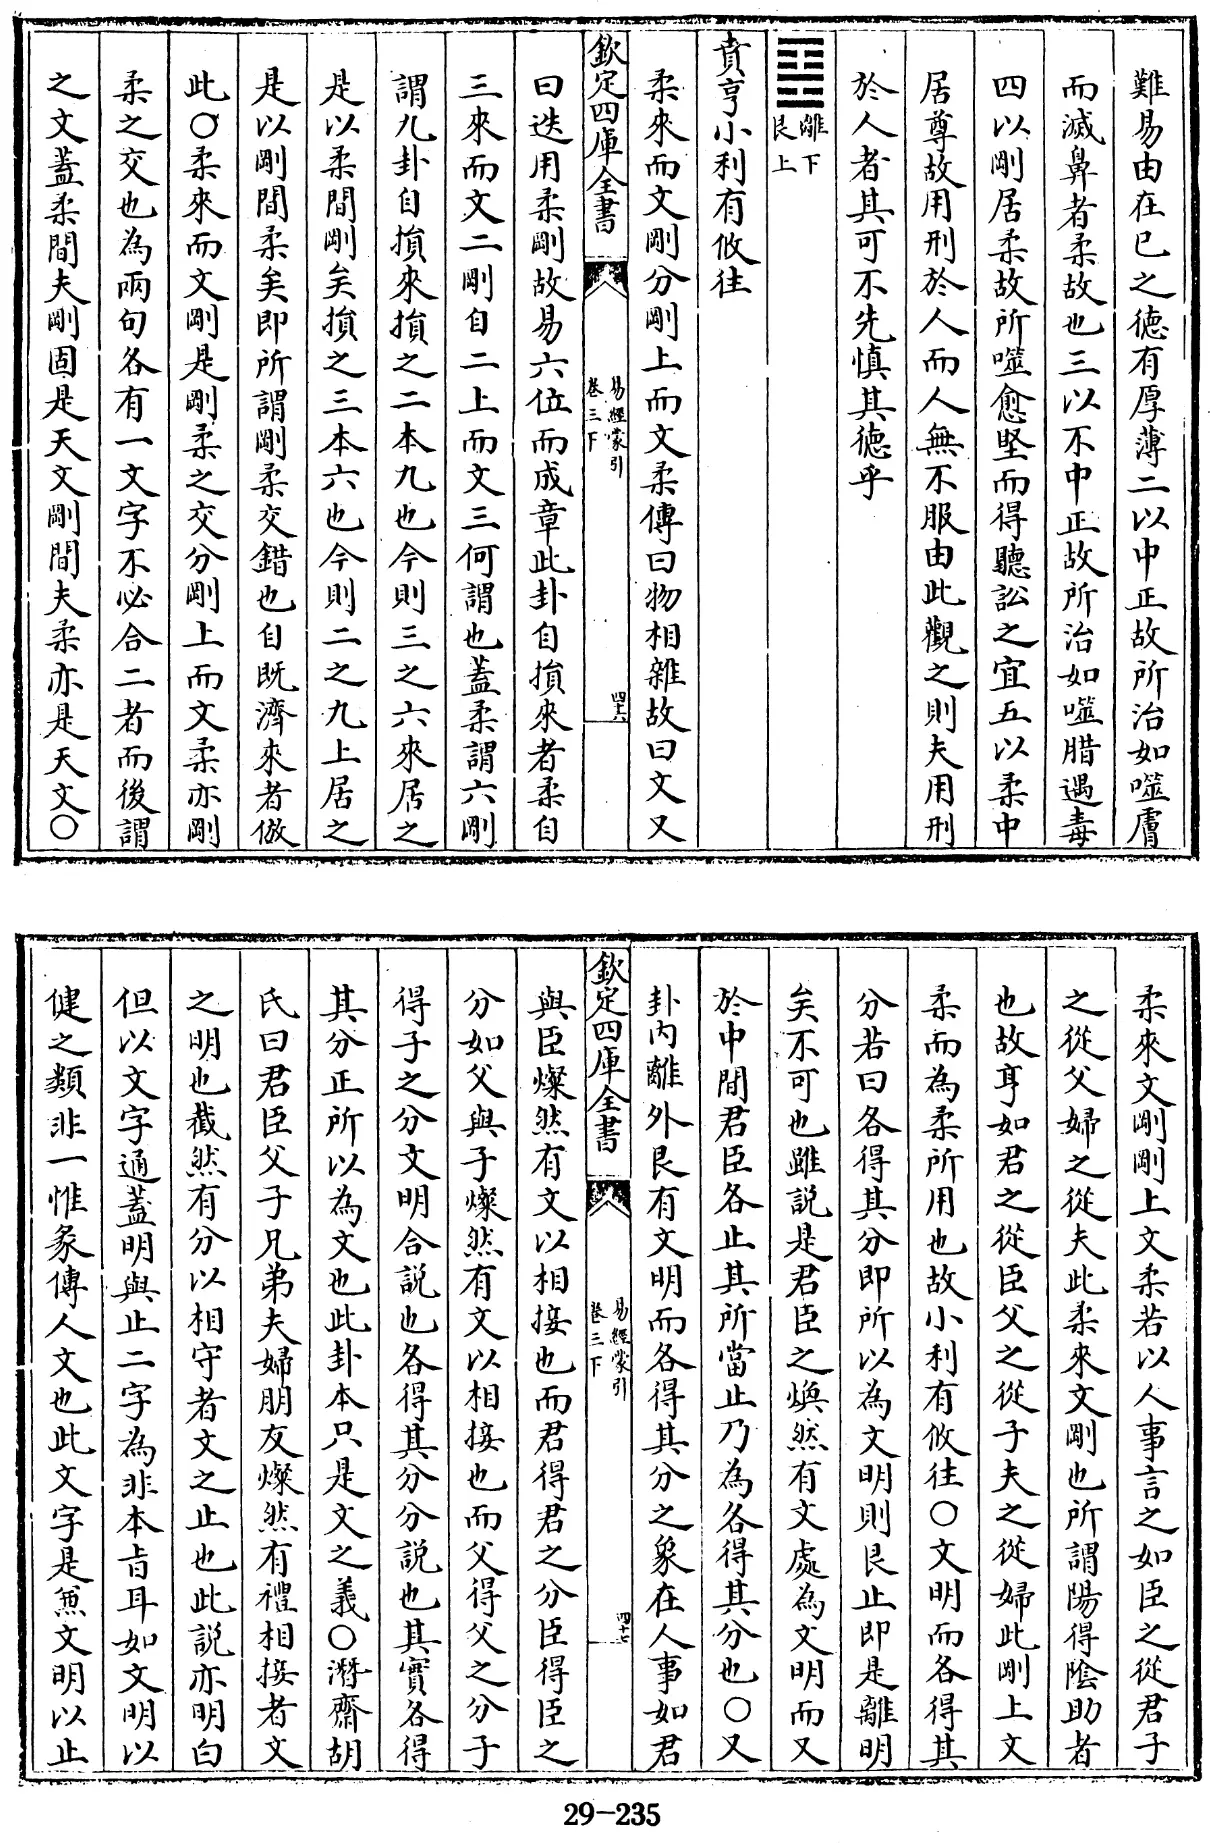 難易由在已之德有厚薄二以中正故所治如噬膚
而滅鼻者柔故也三以不中正故所治如噬腊遇毒
四以剛居柔故所噬愈堅而得聽訟之宜五以柔中
居尊故用刑於人而人無不服由此觀之則夫用刑
於人者其可不先慎其德乎
離下
艮上
賁亨小利有攸往
柔來而文剛分剛上而文柔傳曰物相雜故曰文又
欽定四庫全書
易經蒙引
卷三下
四十六
曰迭用柔剛故易六位而成章此卦自損來者柔自
三來而文二剛自二上而文三何謂也蓋柔謂六剛
謂九卦自損來損之二本九也今則三之六來居之
是以柔間剛矣損之三本六也今則二之九上居之
是以剛間柔矣即所謂剛柔交錯也自既濟來者倣
此○柔來而文剛是剛柔之交分剛上而文柔亦剛
柔之交也為兩句各有一文字不必合二者而後謂
之文蓋柔間夫剛固是天文剛間夫柔亦是天文○
柔來文剛剛上文柔若以人事言之如臣之從君子
之從父婦之從夫此柔來文剛也所謂陽得陰助者
也故亨如君之從臣父之從子夫之從婦此剛上文
柔而為柔所用也故小利有攸往○文明而各得其
分若曰各得其分即所以為文明則艮止即是離明
矣不可也雖說是君臣之煥然有文處為文明而又
於中間君臣各止其所當止乃為各得其分也○又
卦內離外艮有文明而各得其分之象在人事如君
欽定四庫全書
易經蒙引
卷三下
四十七
與臣燦然有文以相接也而君得君之分臣得臣之
分如父與子燦然有文以相接也而父得父之分子
得子之分文明合說也各得其分分說也其實各得
其分正所以為文也此卦本只是文之義○潛齋胡
氏曰君臣父子兄弟夫婦朋友燦然有禮相接者文
之明也截然有分以相守者文之止也此說亦明白
但以文字通蓋明與止二字為非本旨耳如文明以
健之類非一惟彖傳人文也此文字是兼文明以止
29-235